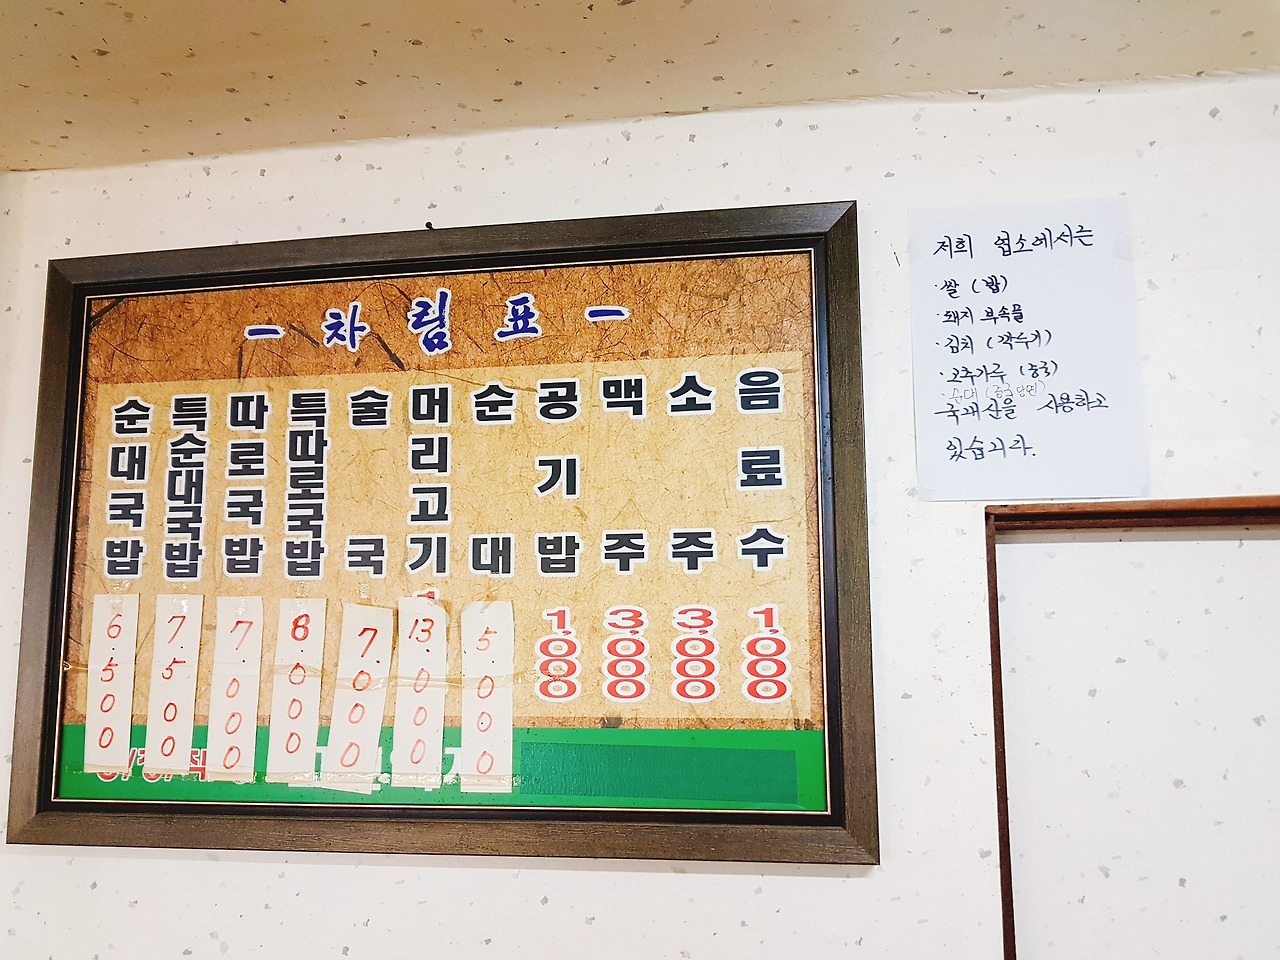 - 차림표 -
순대국밥 6,500
특순대국밥 7,500
따로국밥 7,000
특따로국밥 8,000
술국 7,000
머리고기 13,000
순대 5,000
공기밥 1,000
맥주 3,000
소주 3,000
음료수 1,000
저희 업소에서는
·쌀 (밥)
·돼지 부속물
·김치 (깍두기)
·고추가루 (중국)
·순대 (중국당면)
국내산을 사용하고
있습니다.